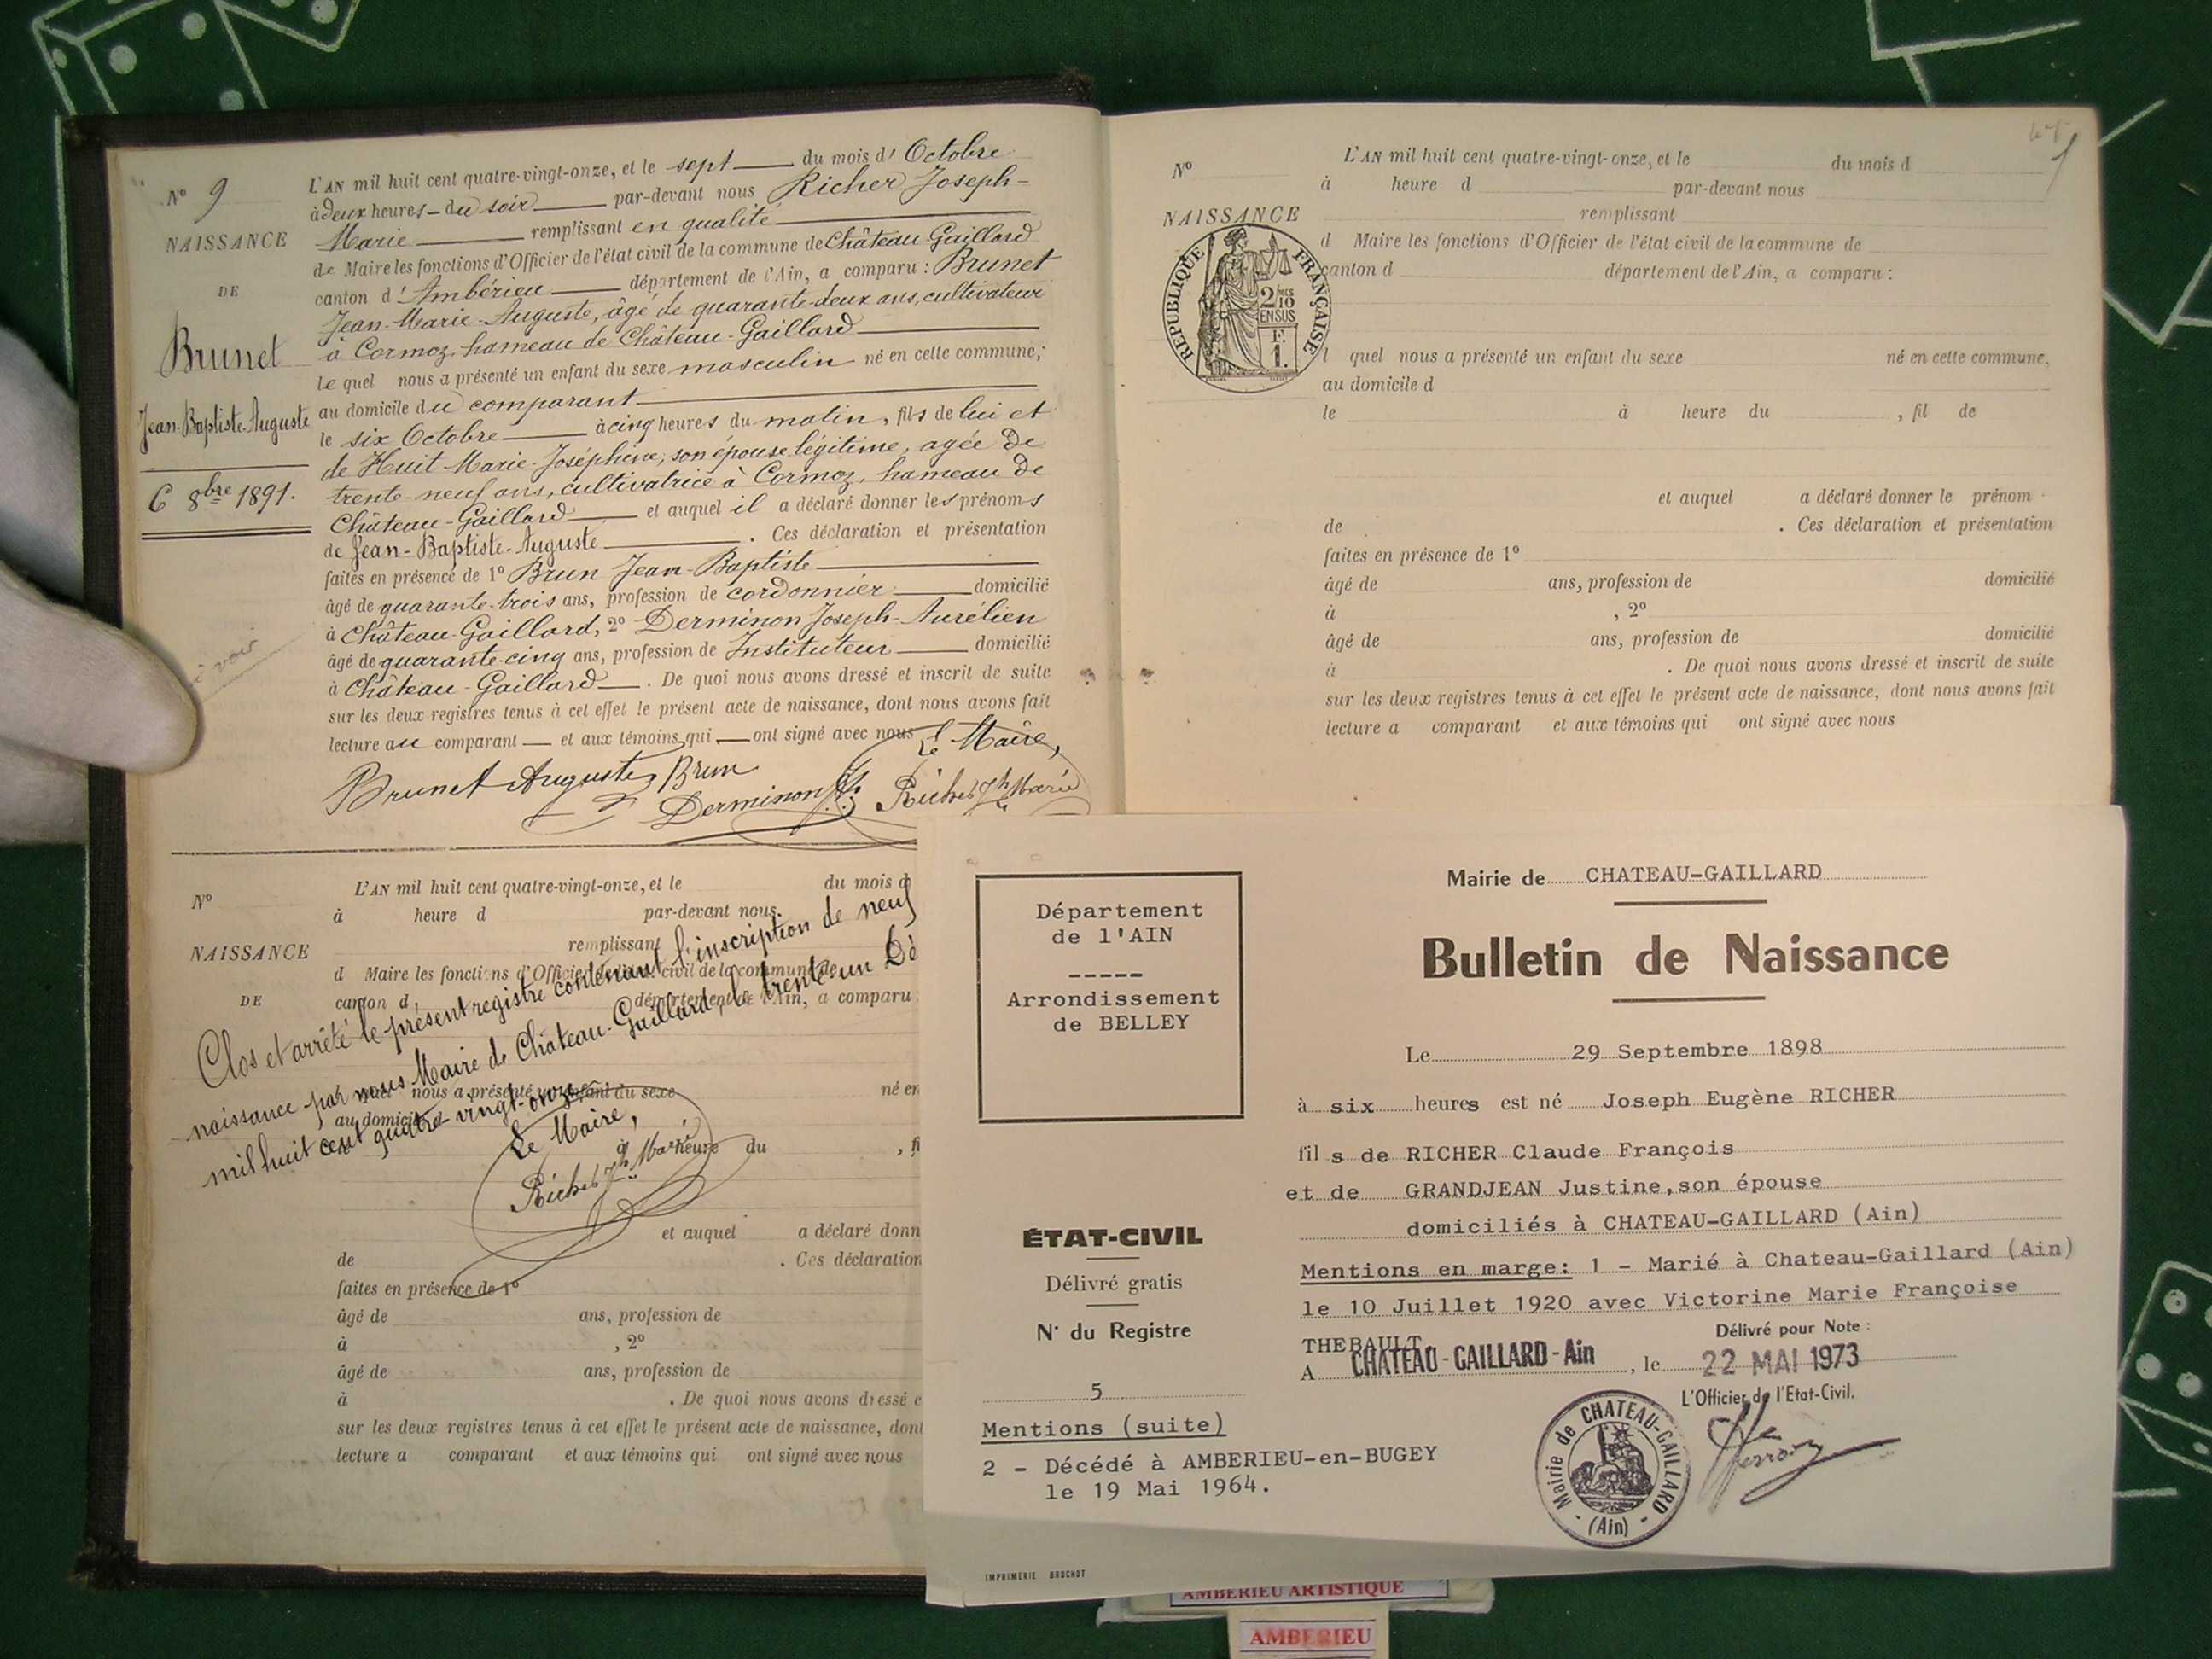 Nº 9
NAISSANCE
DE
Brunet
Jean-Baptiste-Auguste
6 8bre 1891.
L'AN mil huit cent quatre-vingt-onze, et le sept du mois d'Octobre
à deux heures du soir par-devant nous, Richer Joseph-
Marie remplissant en qualité
de Maire les fonctions d'Officier de l'état civil de la commune de Château-Gaillard
canton d'Ambérieu département de l'Ain, a comparu : Brunet
Jean-Marie-Auguste, âgé de quarante-deux ans, cultivateur
à Cormoz, hameau de Château-Gaillard
le quel nous a présenté un enfant du sexe masculin né en cette commune,
au domicile du comparant
le six Octobre à cinq heures du matin, fils de lui et
de Huit Marie-Joséphine, son épouse légitime, agée de
trente-neuf ans, cultivatrice à Cormoz, hameau de
Château-Gaillard et auquel il a déclaré donner les prénoms
de Jean-Baptiste-Auguste . Ces déclaration et présentation
faites en présence de 1º Brun Jean-Baptiste
âgé de quarante-trois ans, profession de cordonnier domicilié
à Château-Gaillard, 2º Derminon Joseph-Aurélien
âgé de quarante-cinq ans, profession de Instituteur domicilié
à Château-Gaillard . De quoi nous avons dressé et inscrit de suite
sur les deux registres tenus à cet effet le présent acte de naissance, dont nous avons fait
lecture au comparant et aux témoins qui ont signé avec nous
Le Maire,
Brunet Auguste Brun
Derminon Richer Jh Marie
à voir
Nº
NAISSANCE
DE
L'AN mil huit cent quatre-vingt-onze, et le du mois d
à heure d par-devant nous
remplissant
d Maire les fonctions d'Officier de l'état civil de la commune de
canton d département de l'Ain, a comparu :
quel nous a présenté un enfant du sexe né en
au domicile d
à heure du , fi
et auquel a déclaré donn
de . Ces déclaration
faites en présence de 1º
âgé de ans, profession de
à , 2º
âgé de ans, profession de
à . De quoi nous avons dressé e
sur les deux registres tenus à cet effet le présent acte de naissance, dont
lecture a comparant et aux témoins qui ont signé avec nous
Clos et arrêté le présent registre contenant l'inscription de neuf
naissance par nous Maire de Château-Gaillard, le trente-un Dé
mil huit cent quatre-vingt-onze
Le Maire,
Richer Jh Marie
Nº
NAISSANCE
RÉPUBLIQUE FRANÇAISE
2/10 EN SUS
F. 1.
L'AN mil huit cent quatre-vingt-onze, et le du mois d
à heure d par-devant nous
remplissant
d Maire les fonctions d'Officier de l'état civil de la commune de
canton d département de l'Ain, a comparu :
l quel nous a présenté un enfant du sexe né en cette commune,
au domicile d
le à heure du , fil de
et auquel a déclaré donner le prénom
de . Ces déclaration et présentation
faites en présence de 1º
âgé de ans, profession de domicilié
à , 2º
âgé de ans, profession de domicilié
à . De quoi nous avons dressé et inscrit de suite
sur les deux registres tenus à cet effet le présent acte de naissance, dont nous avons fait
lecture a comparant et aux témoins qui ont signé avec nous
Département
de l'AIN
-----
Arrondissement
de BELLEY
ÉTAT-CIVIL
Délivré gratis
Nº du Registre
5
Mentions (suite)
2 - Décédé à AMBERIEU-en-BUGEY
le 19 Mai 1964.
IMPRIMERIE BROCHOT
Mairie de CHATEAU-GAILLARD
Bulletin de Naissance
Le 29 Septembre 1898
à six heures est né Joseph Eugène RICHER
fils de RICHER Claude François
et de GRANDJEAN Justine, son épouse
domiciliés à CHATEAU-GAILLARD (Ain)
Mentions en marge: 1 - Marié à Chateau-Gaillard (Ain)
le 10 Juillet 1920 avec Victorine Marie Françoise
THEBAULT
Délivré pour Note :
A CHATEAU-GAILLARD-Ain , le 22 MAI 1973
L'Officier de l'Etat-Civil.
Mairie de CHATEAU-GAILLARD
- (Ain) -
AMBERIEU ARTISTIQUE
AMBERIEU